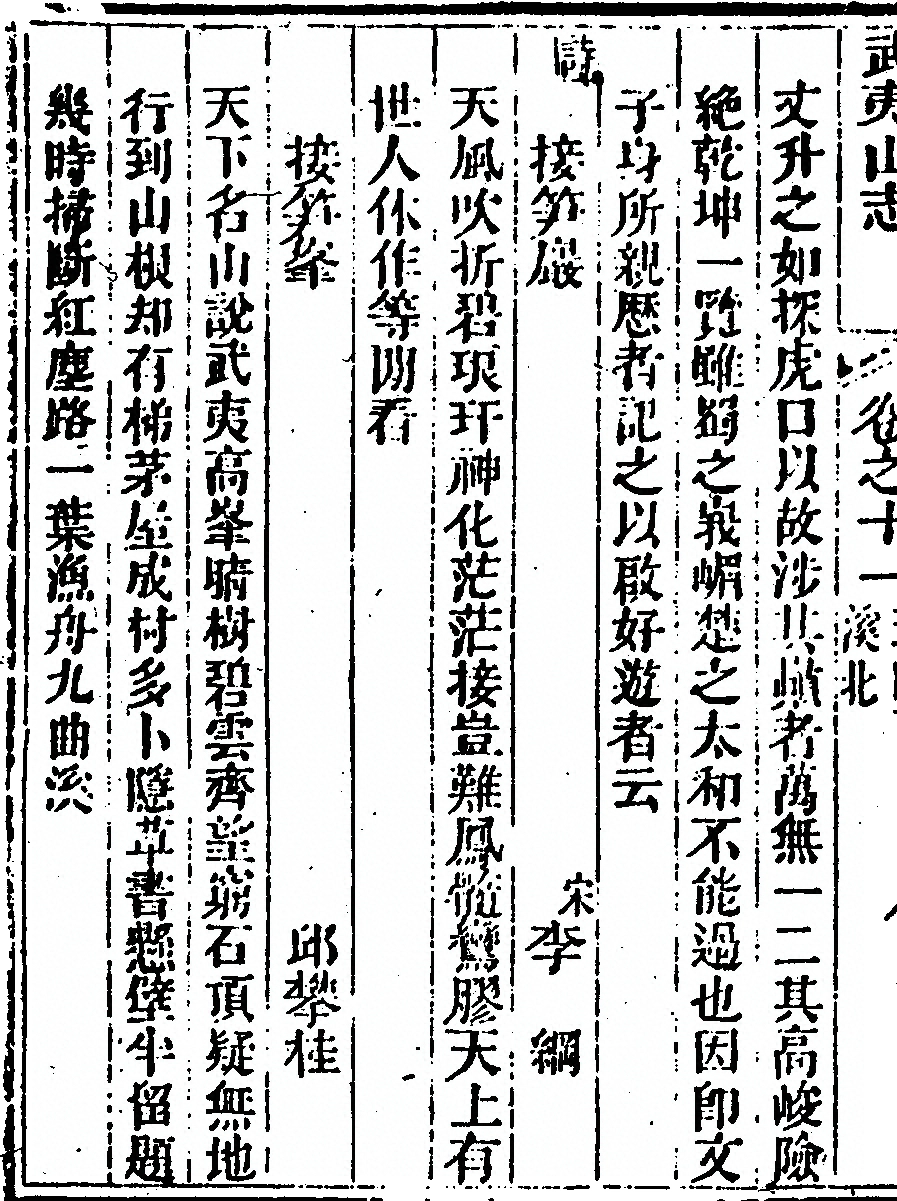 武夷山志
卷之十一
溪北
丈升之如探虎口以故涉其巔者萬無一二其高峻險
絶乾坤一覽雖蜀之峩嵋楚之太和不能過也因卽文
子身所親歷者記之以啟好遊者云
詩
接笋巖 宋李綱
天風吹折碧琅玕神化茫茫接豈難鳳髓鸞膠天上有
世人休作等閒看
接笋峯 邱攀桂
天下名山說武夷高峯晴樹碧雲齊望窮石頂疑無地
行到山根却有梯茅屋成村多卜隱草書懸壁半留題
幾時掃斷紅塵路一葉漁舟九曲溪